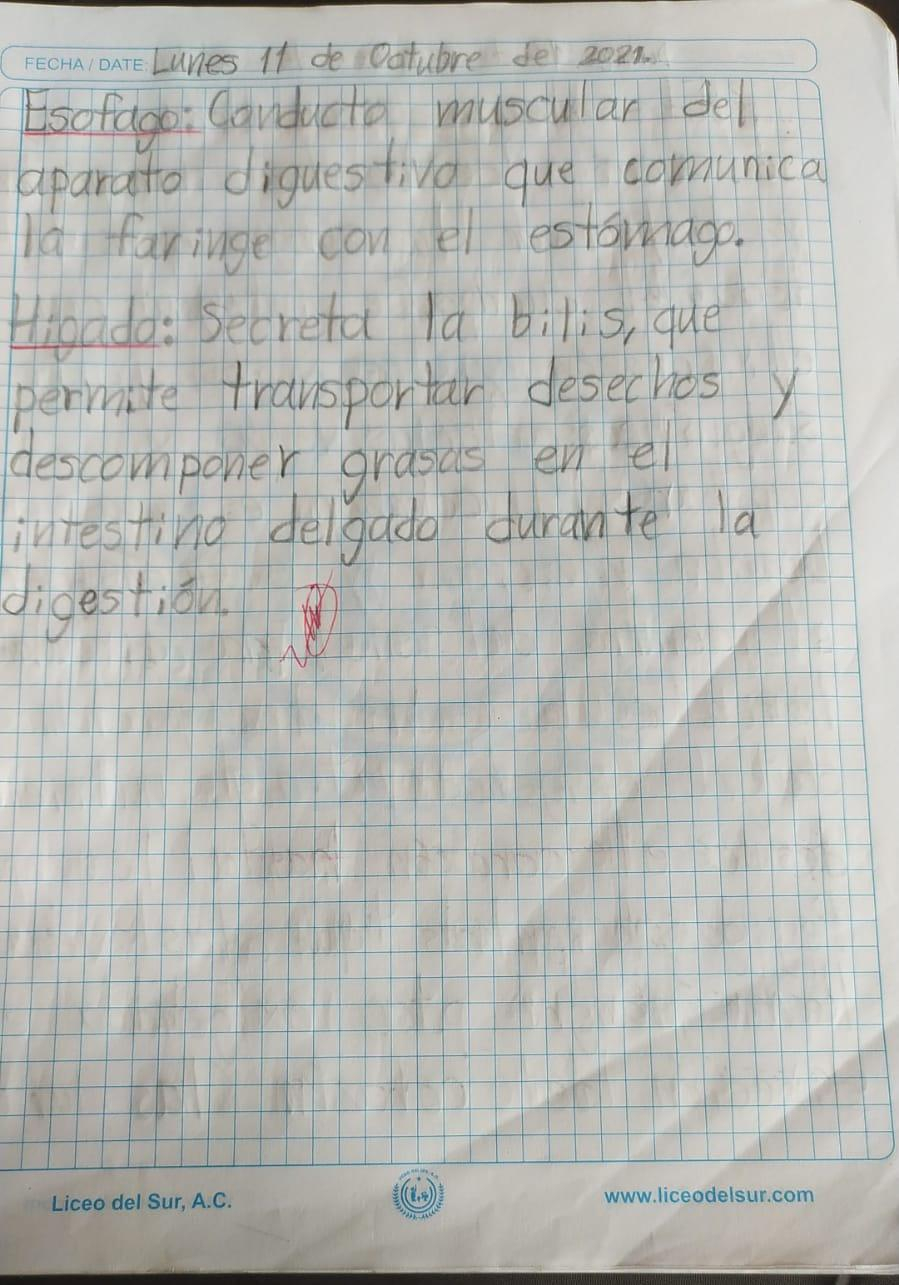 FECHA / DATE: Lunes 11 de Octubre de 2021.
Esofago: Conducto muscular del
aparato diguestivo que comunica
la faringe con el estómago.
Higado: Secreta la bilis, que
permite transportar desechos y
descomponer grasas en el
intestino delgado durante la
digestión.
Liceo del Sur, A.C.
www.liceodelsur.com